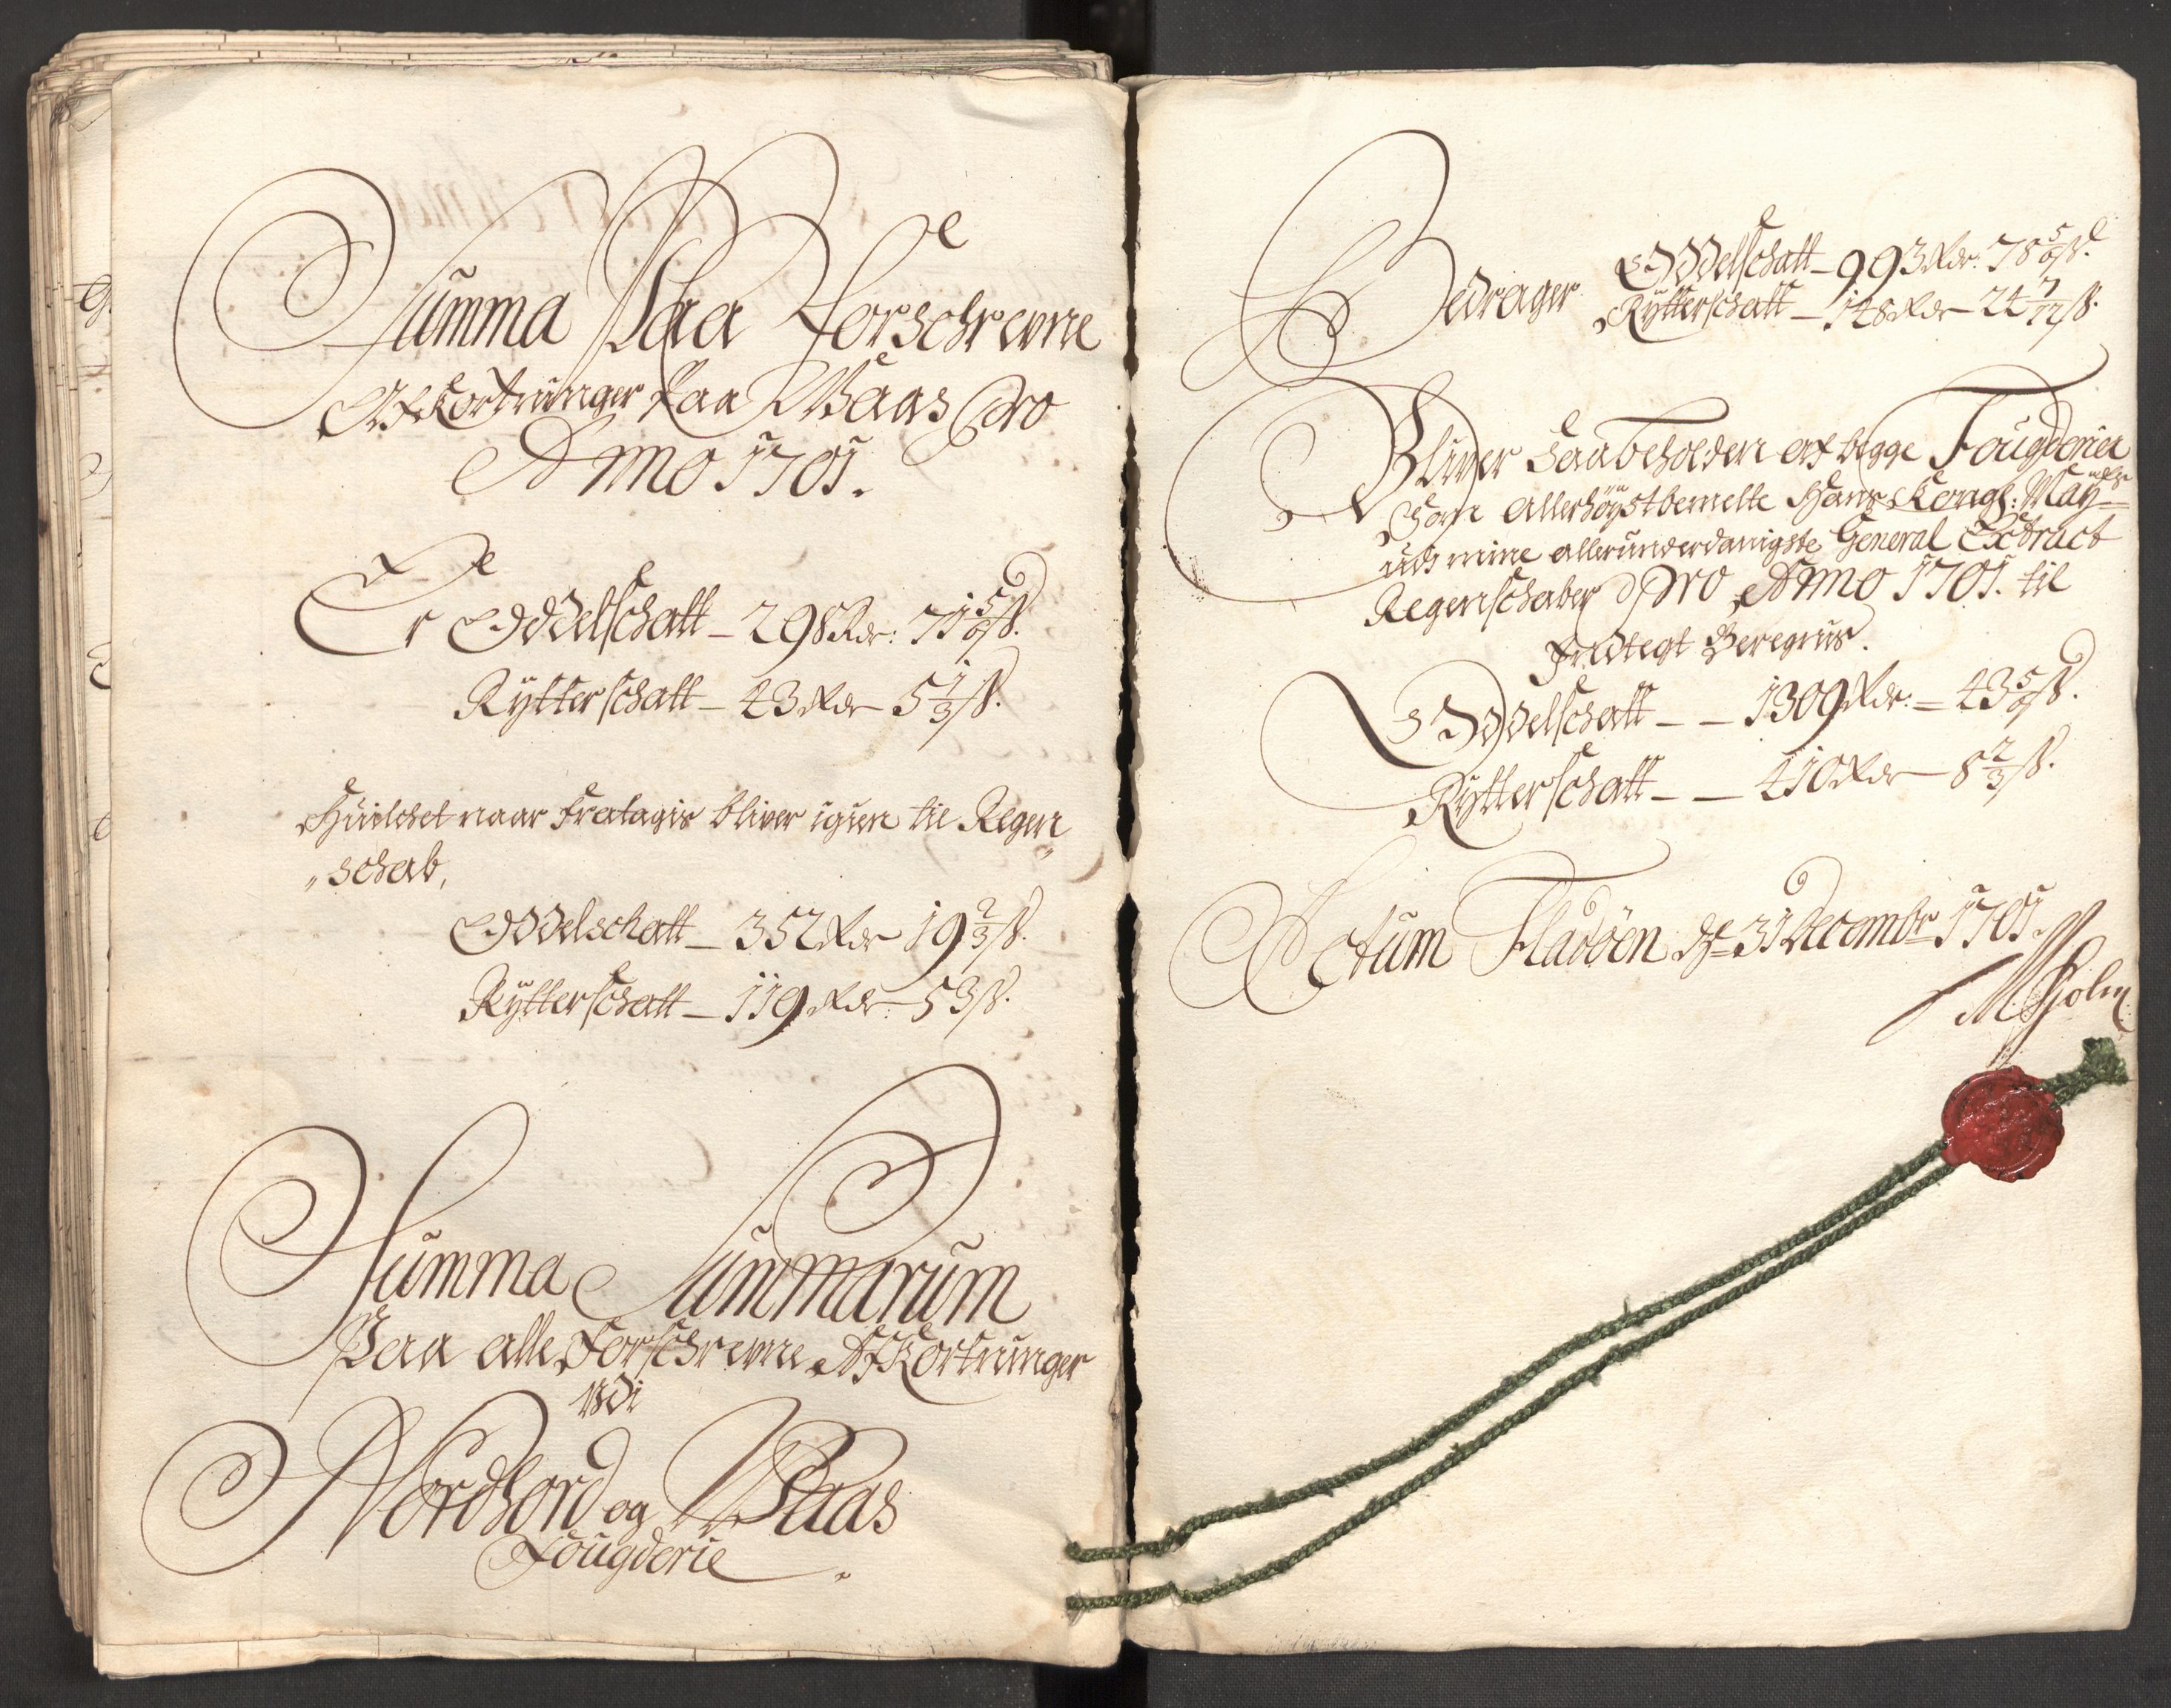 Summa Paa Forschrevne
Af Kortninger Paa Waas Pro
Anno 1701.
Er Oddelschatt – 298 Rdr: 71 5/6 ß.
Rytterschatt – 43 Rdr – 5 1/3 ß.
Huilchet naar fratagis bliver igien til Regen
„schab,
Oddelschatt – 352 Rdr 19 2/3 ß.
Rytterschatt – 119 Rdr – 53 ß.
Summa Summarum
Paa alle Forschrevne AfKortninger
udi
Nordhord og Waas
Fougderie.
Bedrager
Oddelschatt – 993 Rdr: 78 5/6 ß.
Rytterschatt – 148 Rdr – 24 ß.
Bliver saa beholden af begge Fougderier
Som Allerhöystbemelte Hans Kongl: May
udi mine allerunderdanigste General Extract
Regenschaber Pro Anno 1701. til
Beregnis.
Oddelschatt – – 1309 Rdr: – 43 5/6 ß.
Rytterschatt – – 410 Rdr – 8 2/3 ß.
Actum Fladöen d: 31 Decembr 1701.
Holm